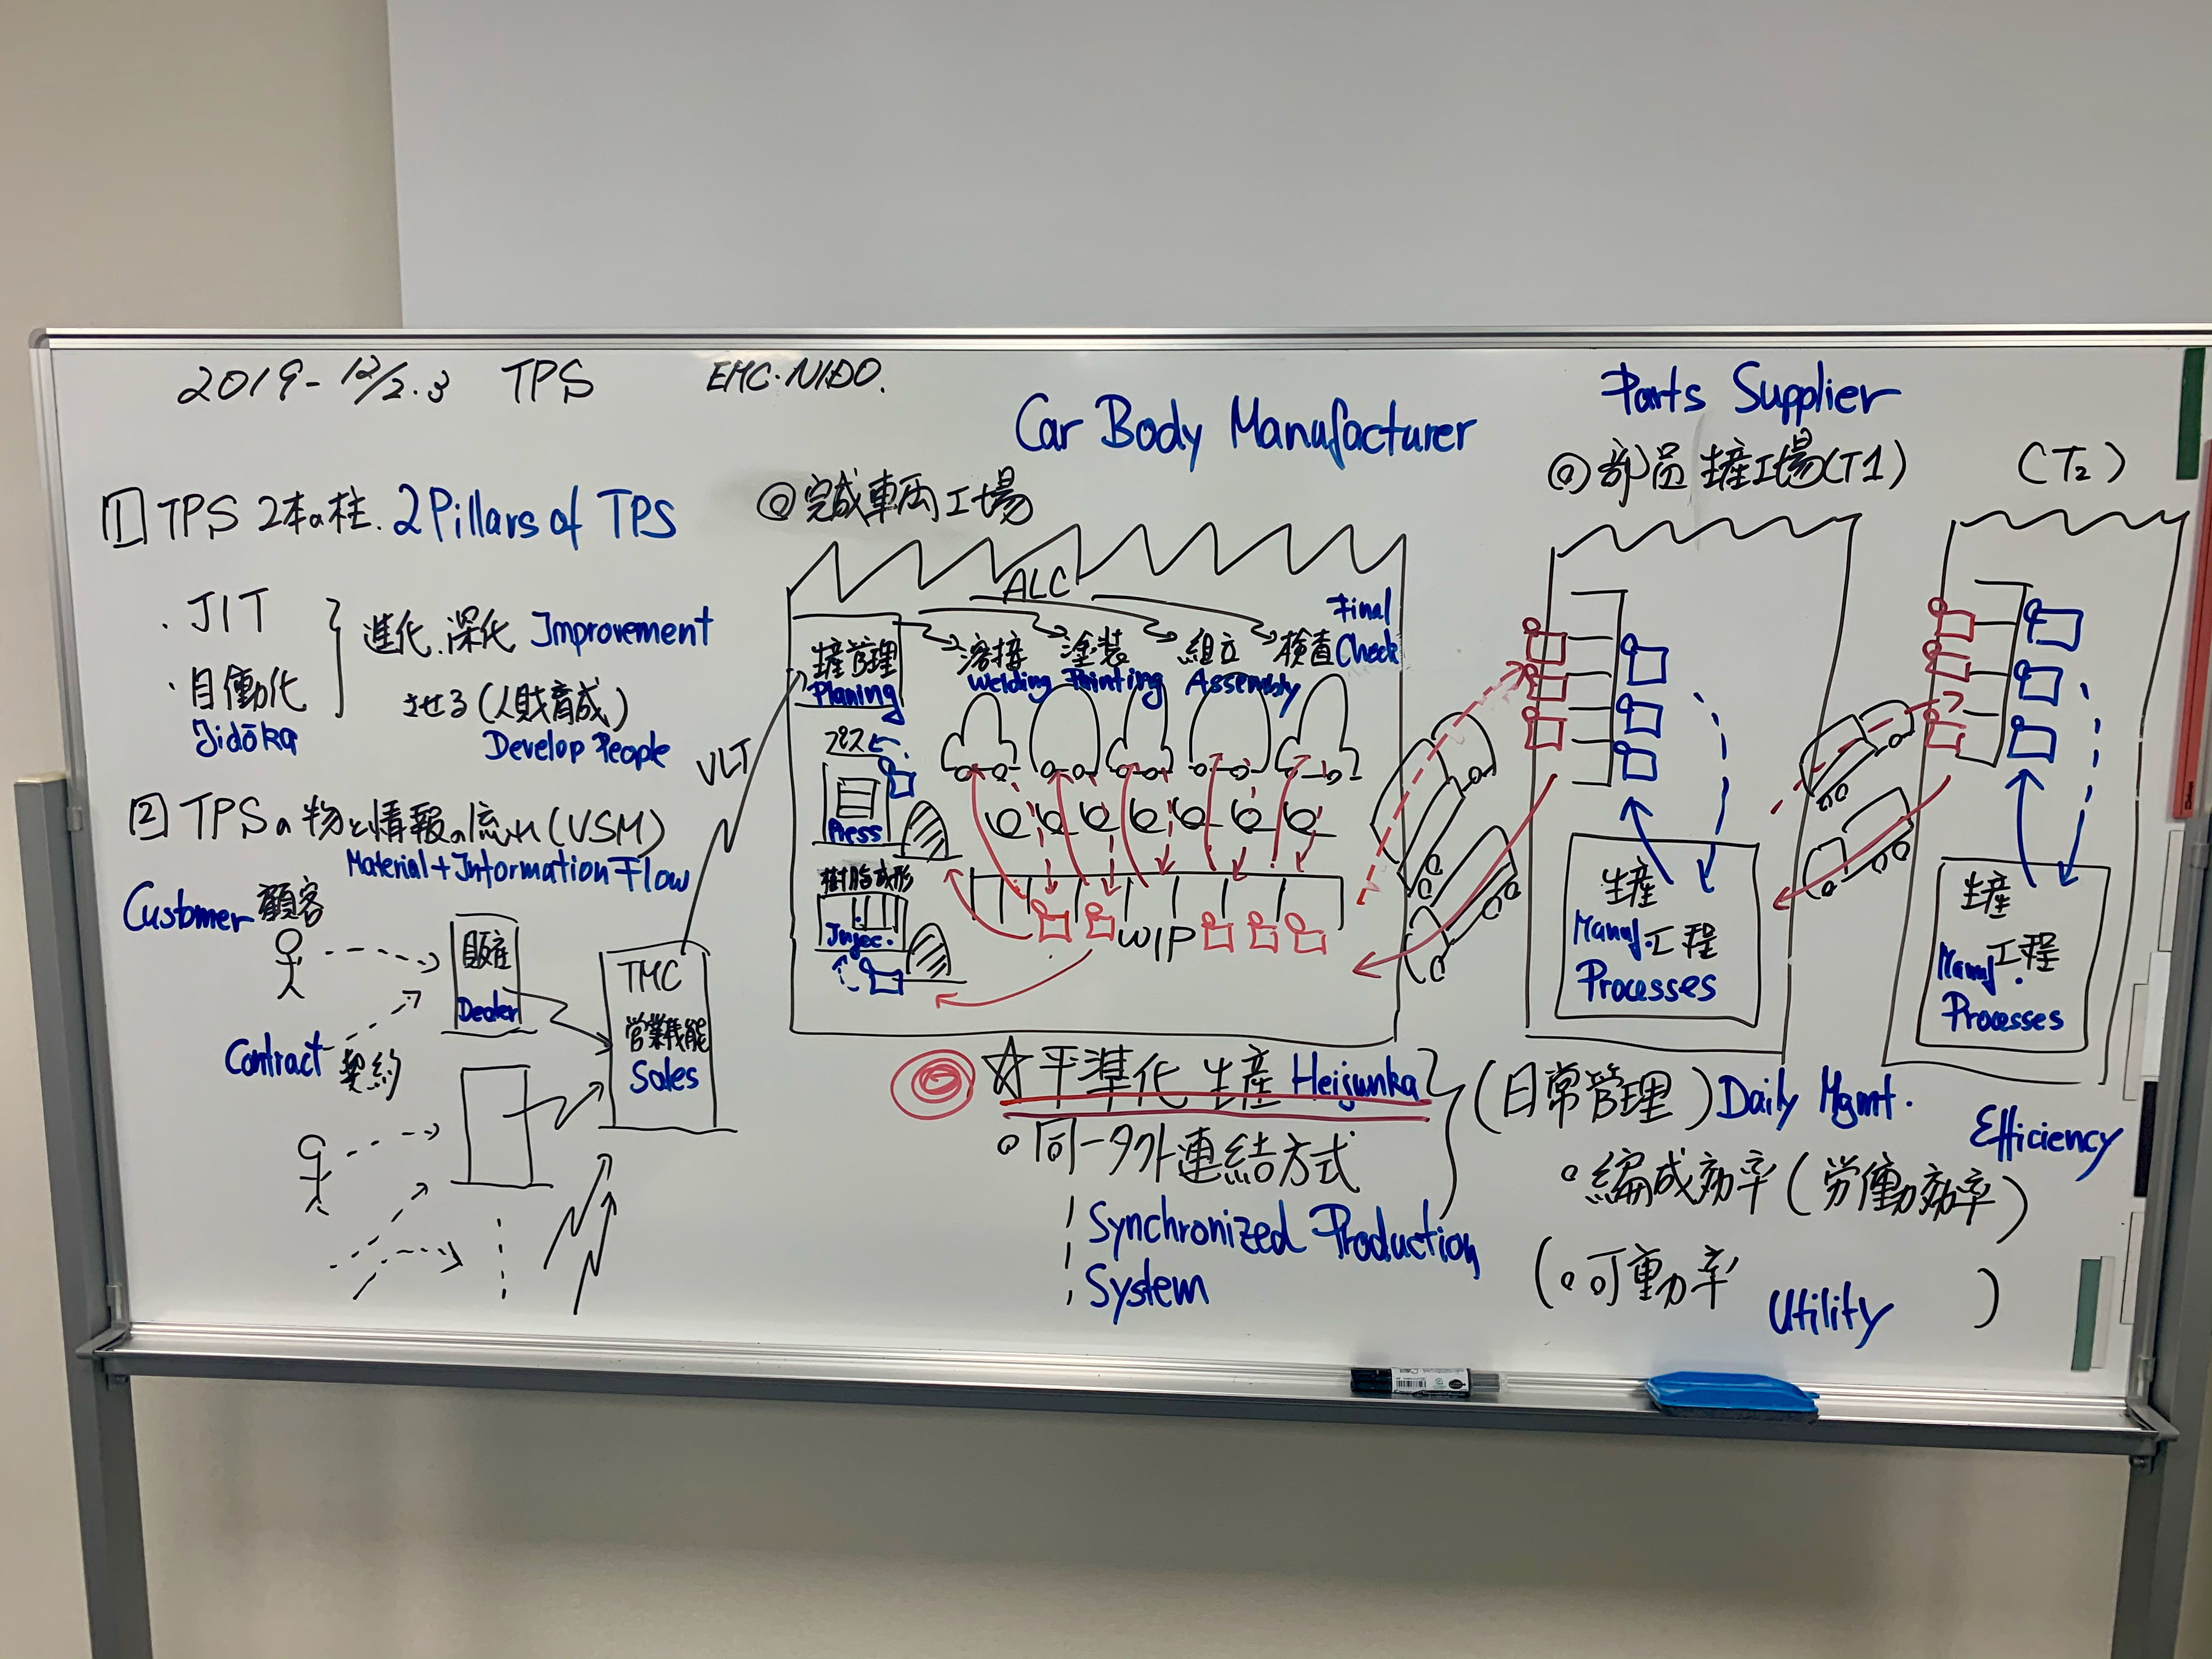 2019-12/2.3 TPS EMC.NIDO.
1 TPS 2本の柱. 2 Pillars of TPS
・JIT
・自働化
Jidōka
進化.深化 Improvement
させる(人財育成)
Develop People
2 TPSの物と情報の流れ(VSM)
Material+Information Flow
Customer 顧客
Contract 契約
販店
Dealer
TMC
営業機能
Sales
VLT
Car Body Manufacturer
◎完成車両工場
ALC
生産管理
Planing
溶接
Welding
塗装
Painting
組立
Assembly
検査
Final
Check
プレス
Press
樹脂成形
Injec.
WIP
Parts Supplier
◎部品生産工場(T1)
生産
Manuf.工程
Processes
(T2)
生産
Manuf.工程
Processes
☆平準化生産 Heijunka
○同一タクト連結方式
Synchronized Production
System
(日常管理) Daily Mgmt.
Efficiency
○編成効率(労働効率)
(○可動率 Utility )